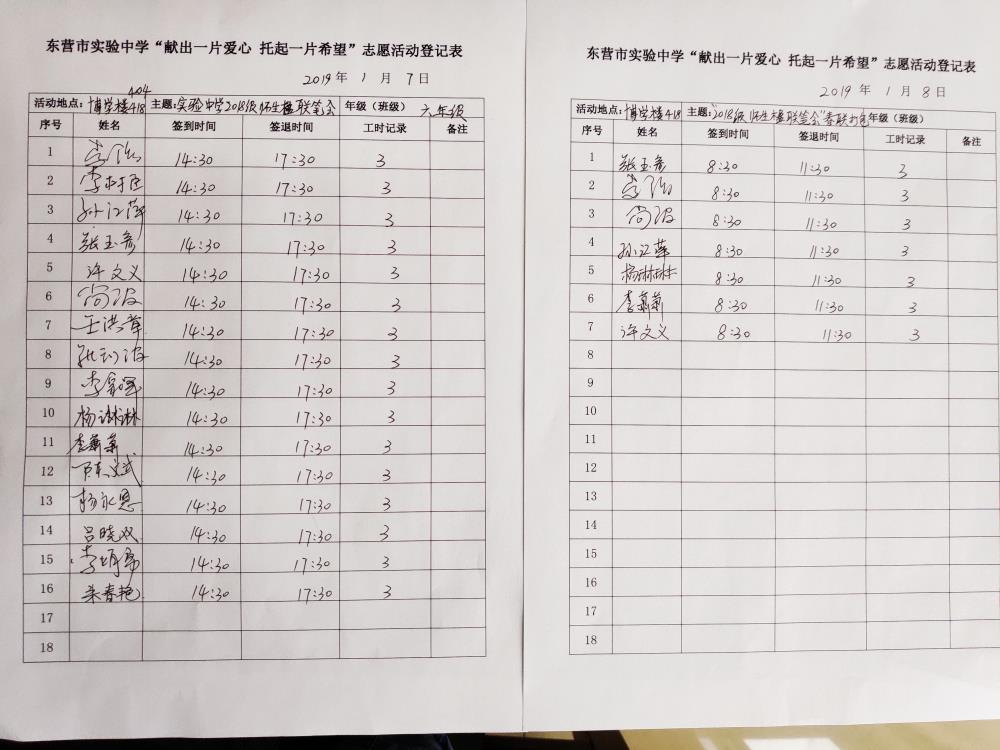 东营市实验中学“献出一片爱心 托起一片希望”志愿活动登记表
2019年 1月 7日
404
活动地点：博学楼418 主题：实验中学2018级师生楹联笔会 年级（班级） 六年级
序号 姓名 签到时间 签退时间 工时记录 备注
1 14:30 17:30 3
2 14:30 17:30 3
3 孙江萍 14:30 17:30 3
4 张玉彦 14:30 17:30 3
5 许文义 14:30 17:30 3
6 尚波 14:30 17:30 3
7 王洪章 14:30 17:30 3
8 14:30 17:30 3
9 14:30 17:30 3
10 杨琳琳 14:30 17:30 3
11 李莉莉 14:30 17:30 3
12 14:30 17:30 3
13 杨永恩 14:30 17:30 3
14 吕晓双 14:30 17:30 3
15 14:30 17:30 3
16 朱春艳 14:30 17:30 3
17
18
东营市实验中学“献出一片爱心 托起一片希望”志愿活动登记表
2019年 1月 8日
活动地点：博学楼418 主题：“2018级师生楹联笔会”春联打包 年级（班级）
序号 姓名 签到时间 签退时间 工时记录 备注
1 张玉彦 8:30 11:30 3
2 8:30 11:30 3
3 尚波 8:30 11:30 3
4 孙江萍 8:30 11:30 3
5 杨琳琳 8:30 11:30 3
6 李莉莉 8:30 11:30 3
7 许文义 8:30 11:30 3
8
9
10
11
12
13
14
15
16
17
18